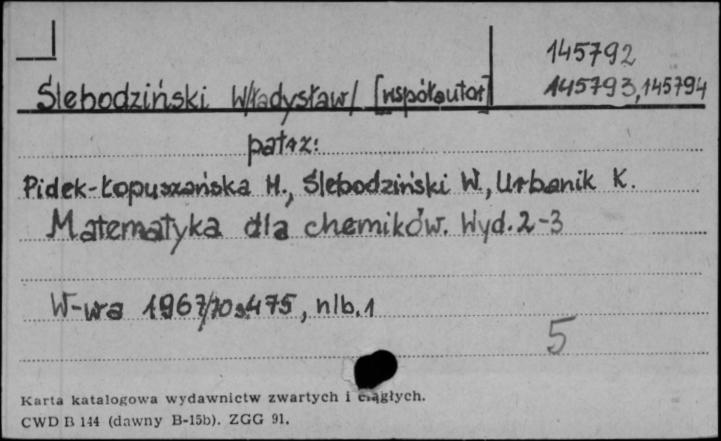 145792
Ślebodziński Władysław/ [współautor] 145793, 145794
patrz:
Pidek-Łopuszańska H., Ślebodziński W., Urbanik K.
Matematyka dla chemików. Wyd. 2-3
W-wa 1967/70 s. 475, nlb. 1
5
Karta katalogowa wydawnictw zwartych i ciągłych.
CWD B 144 (dawny B-15b). ZGG 91.